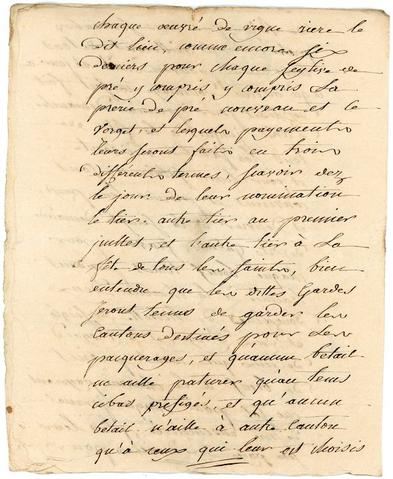 chaque oeuvré de vigne riere le
dit lieu, comme encore six
deniers pour chaque seytive de
pré y compris y compris La
prérie de pré nouveau et le
verget, et lesquels payements
leurs seront faits en trois
différents termes, sçavoir dez
le jour de leur nomination
le tier, autre tier au premier
juillet, et l'autre tier à La
fête de tous les saints, bien
entendu que les dittes Gardes
seront tenus de garder les
cantons destinés pour Les
pacquerages, et qu'aucun bétail
n'y aille paturer qu'au tems
cibas préfigés, et qu'aucun
bétail n'aille à autre canton
qu'à ceux qui leur est choisis